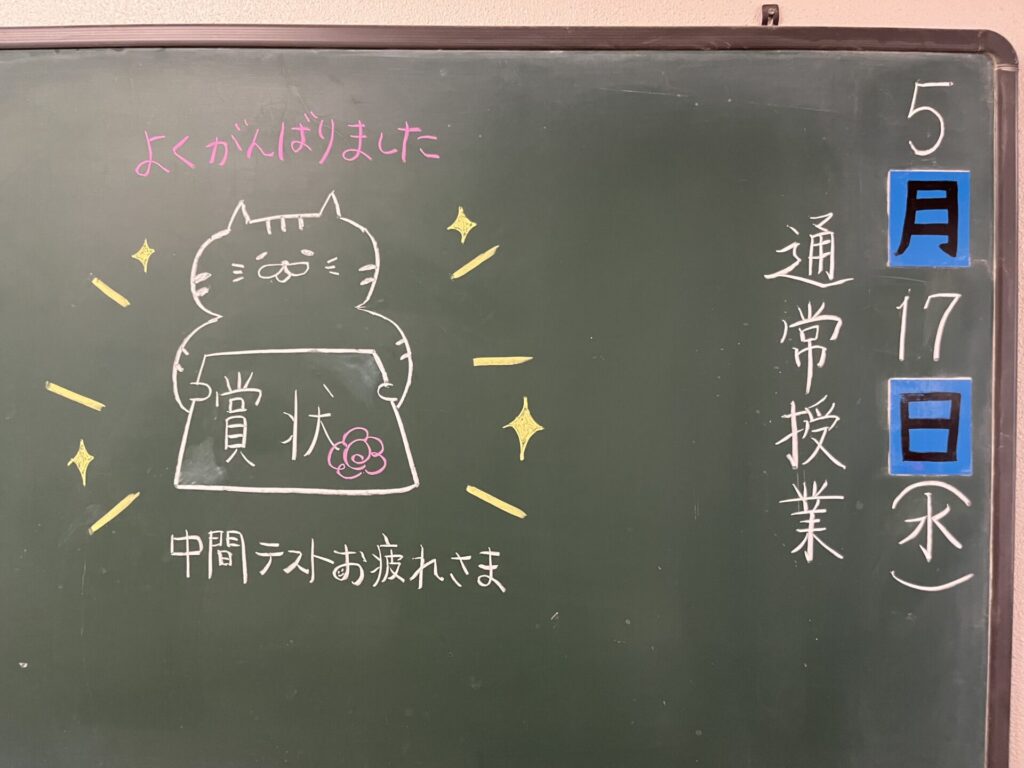 5月17日(水)
通常授業
よくがんばりました
賞状
中間テストお疲れさま